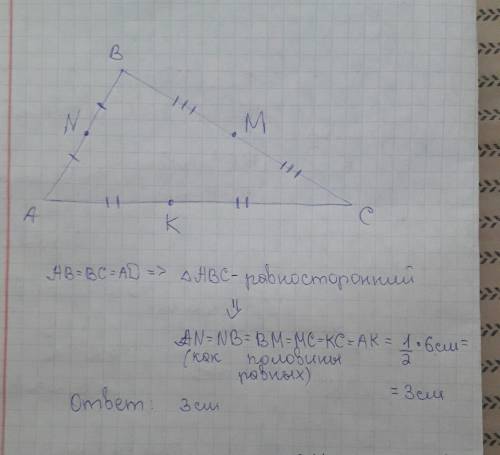 B
N
M
A
K
C
AB=BC=AD => △ABC- равносторонний
⇓
AN=NB=BM=MC=KC=AK= 1/2 · 6см=
(как половины
равных)
= 3см
Ответ: 3см